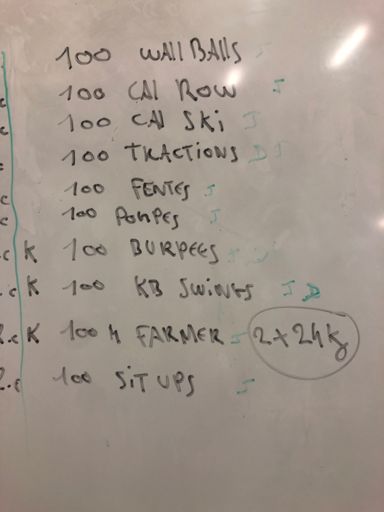 100 WALL BALLS J
100 CAL ROW J
c 100 CAL SKi J
c 100 TRACTIONS D J
c 100 FENTES J
c 100 POMPES J
.c K 100 BURPEES
.c K 100 KB SWINGS J D
2.c K 100 M FARMER J 2x24kg
2.c 100 SiT UPS J